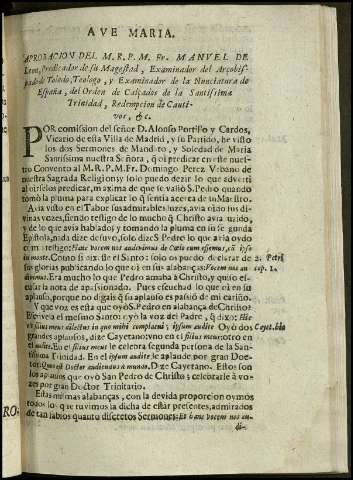 AVE MARIA.
APROBACION DEL M.R.P.M. Fr. MANVEL DE
Leon, Predicador de su Magestad, Examinador del Arçobis-
pado de Toledo, Teologo, y Examinador de la Nunciatura de
España, del Orden de Calçados de la Santissima
Trinidad, Redempcion de Cauti-
vos, &c.
POR comission del señor D. Alonso Portillo y Cardos,
Vicario de esta Villa de Madrid, y su Partido, he visto
los dos Sermones de Mandato, y Soledad de Maria
Santissima nuestra Señora, q̃ oì predicar en este nues-
tro Convento al M.R.P.M.Fr. Domingo Perez, Vrbano de
nuestra Sagrada Religion; y solo puedo dezir lo que advertì
al oirselos predicar, maxima de que se valiò S. Pedro quando
tomò la pluma para explicar lo q̃ sentia acerca de su Maestro.
Avia visto en el Tabor sus admirables luzes, avia oìdo sus di-
vinas vozes, siendo testigo de lo mucho q̃ Christo avia luzido,
y de lo que avia hablado; y tomando la pluma en su segunda
Epistola, nada dize de suyo, solo dize S. Pedro lo que avia oydo
como testigo: Hanc vocem nos audivimus de Cœlo cum essemus, cũ ipso
in monte. Como si dixesse el Santo: solo os puedo dezir de
2. Petri
sus glorias publicando lo que oì en sus alabanças: Vocem nos au-
cap. 1.
divimus. Era mucho lo que Pedro amaba à Christo, y quiso es-
cusar la nota de apassionado. Pues escuchad lo que oì en su
aplauso, porque no digais q̃ su aplauso es passiō de mi cariño.
Y que voz es esta que oyò S. Pedro en alabança de Christo?
Escrive el mesmo Santo: oyò la voz del Padre, q̃ dixo: Hic
est filius meus dilectus in quo mihi complacui; ipsum audite. Oyò dos
Cayet. hìc
grandes aplausos, dize Cayetano; vno en el filius meus; otro en
el audite. En el filius meus le celebra segunda persona de la San-
tissima Trinidad. En el ipsum audite le aplaude por gran Doc-
tor: Quod est Doctor audiendus à mundo. Dize Cayetano. Estos son
los aplausos que oyò San Pedro de Christo; celebrarle à vo-
zes por gran Doctor Trinitario.
Estas mismas alabanças, con la devida proporcion oymos
todos los que tuvimos la dicha de estàr presentes, admirados
de tan sabios quanto discretos Sermones: Et hanc vocem nos au-
di-